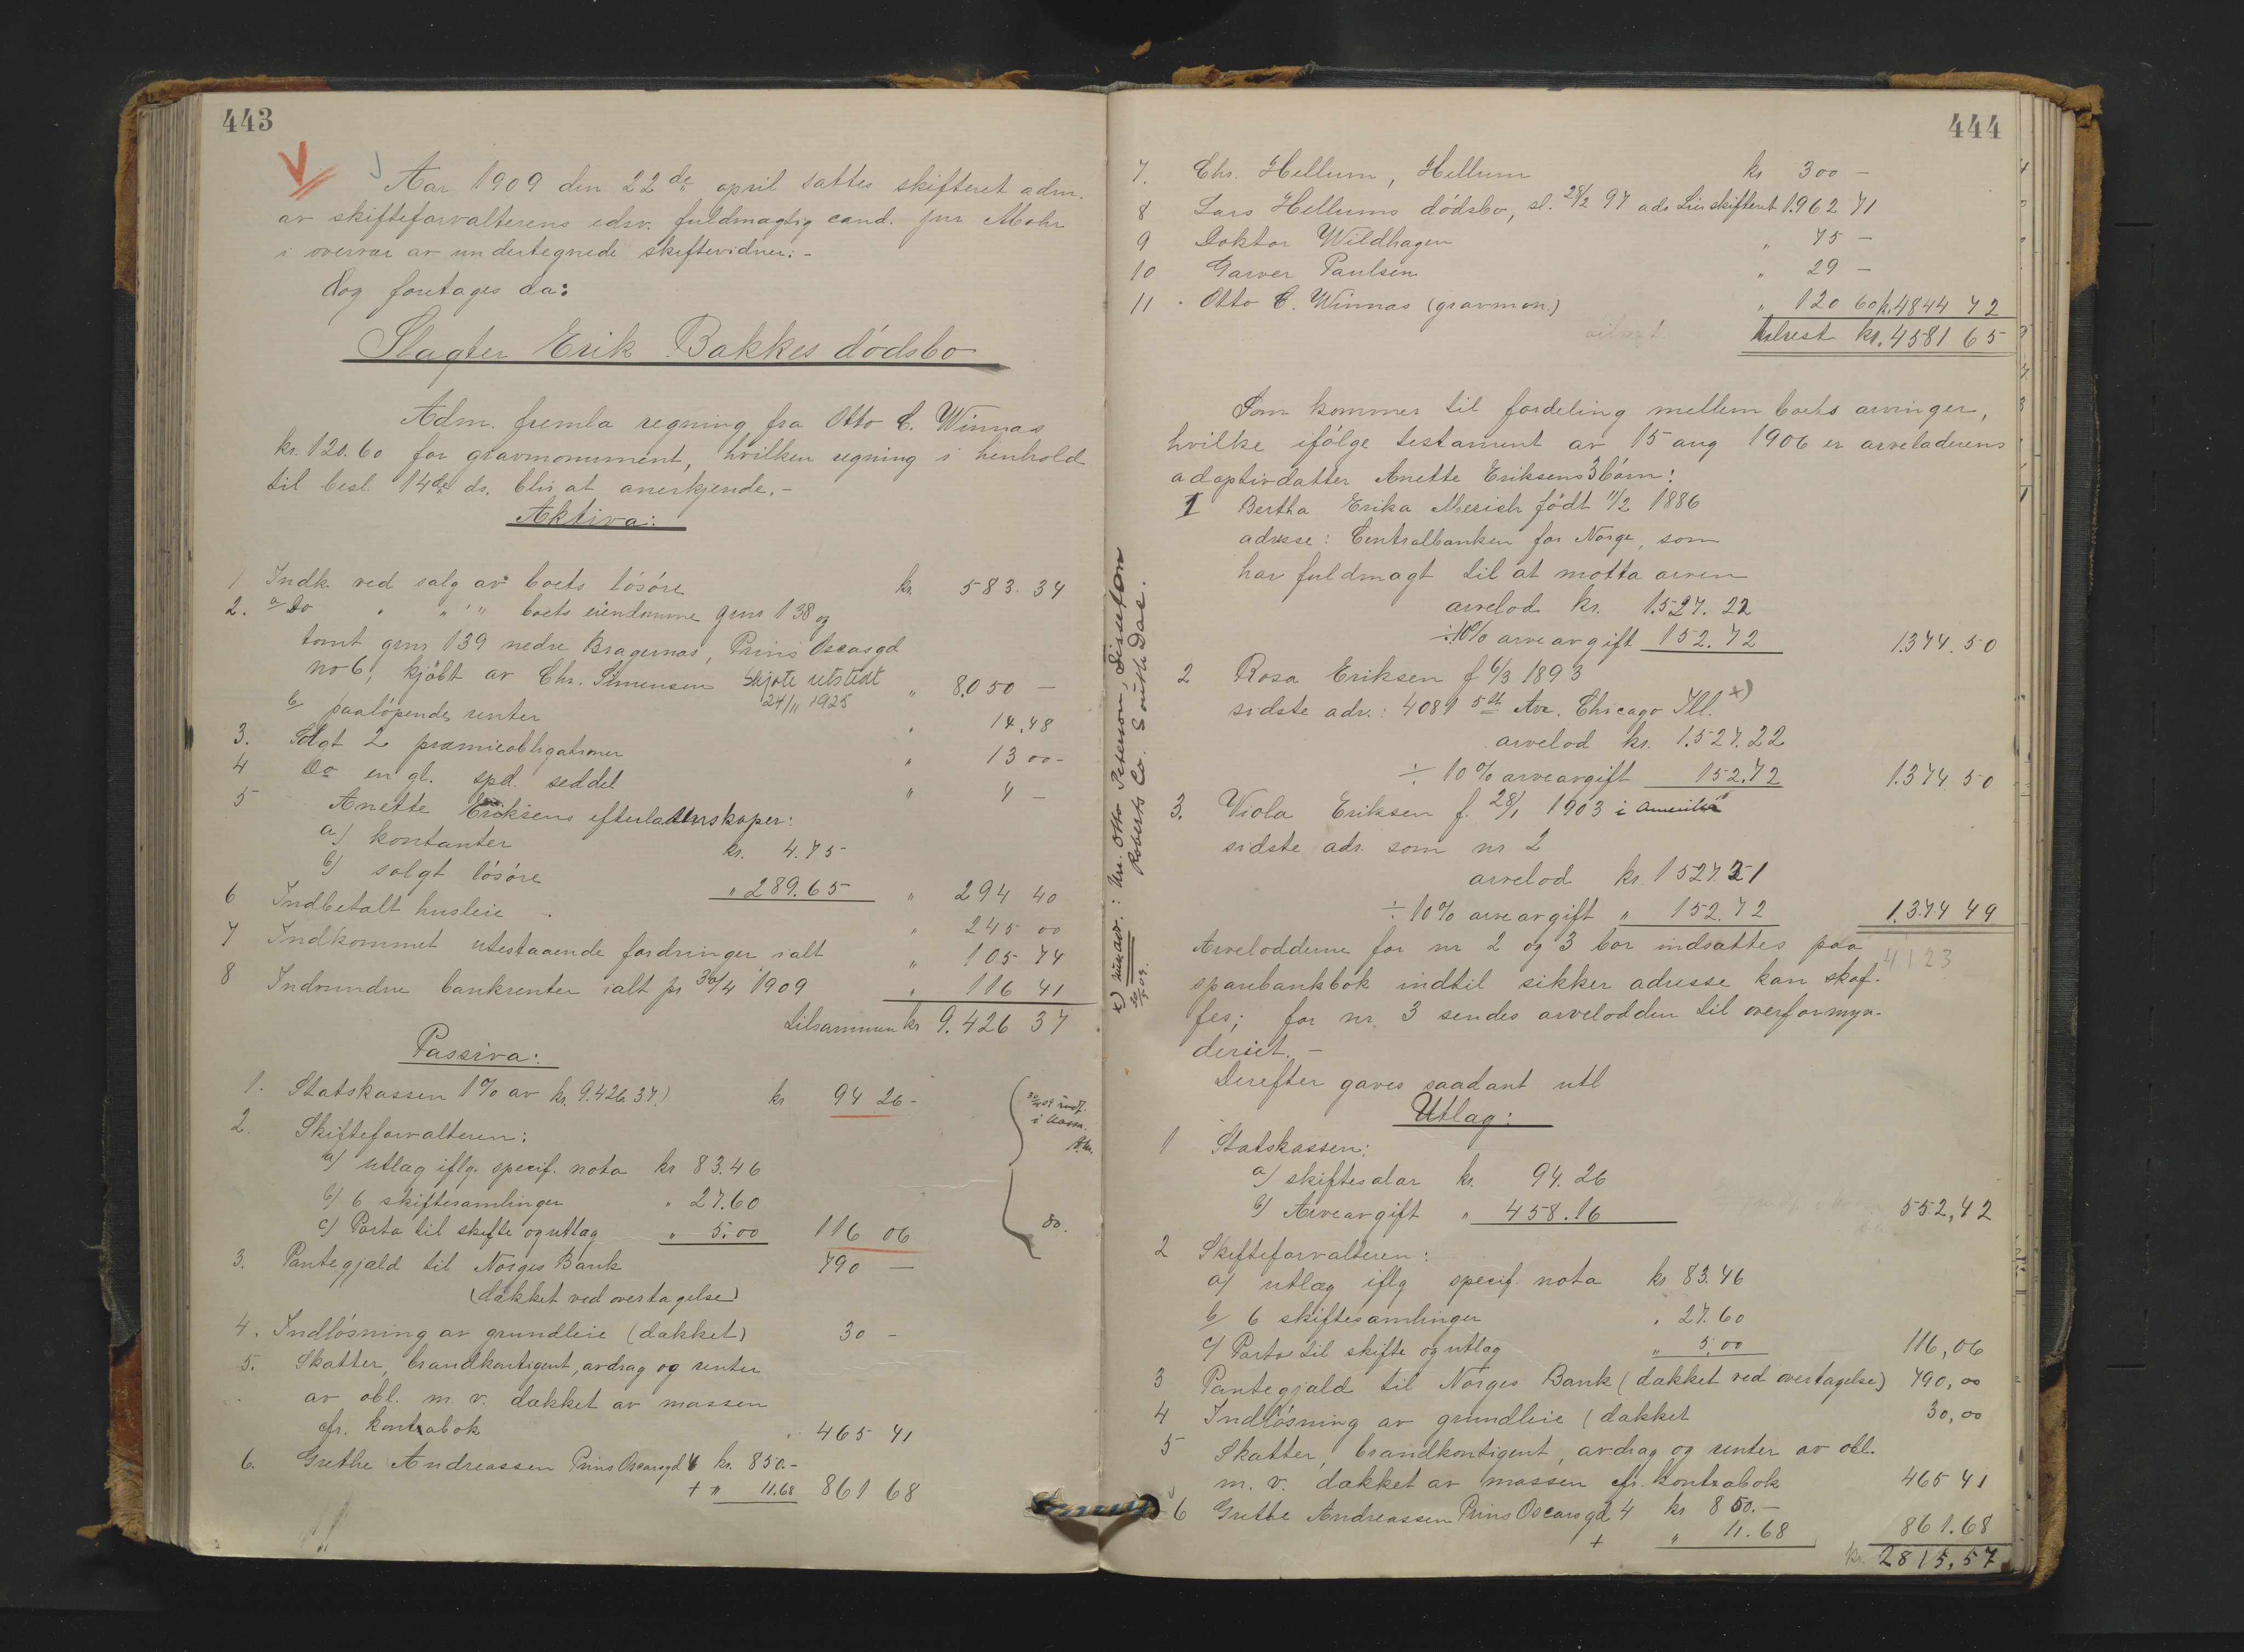 443
Aar 1909 den 22de april sattes skifteret adm.
av skifteforvalterens edsv. fuldmægtig cand. jur Mohr
i overvær av undertegnede skiftevidner:-
Dog foretages da:
Slagter Erik Bakkes dödsbo
Adm. fremla regning fra Otto C. Winnas
kr. 120.60 for gravmonument, hvilken regning i henhold
til besl. 14de ds. blir at anerkjende.-
Aktiva:
1 Indk ved salg av boets lösöre kr. 583.34
2. a Do " " " boets eiendomme grnr 138 og
tomt grnr 139 nedre Bragernæs, Prins Oscarsgd
no 6, kjöbt av Chr. Simensen Skjöte utstedt " 8.050 —
24/11 1925
b paalöpende renter " 14,48
3. Solgt 2 præmieobligationer " 13 00-
4 Do en gl. spd. seddel " 4 —
5 Anette Eriksens efterladenskaper:
a) kontanter kr. 4.75
b) solgt lösöre " 289.65 " 294 40
6 Indbetalt husleie . " 245 00
7 Indkommet utestaaende fordringer ialt " 105 74
8 Indvundne bankrenter ialt pr 30/4 1909 " 116 41
tilsammen kr 9.426 37
Passiva:
1. Statskassen 1% av kr. 9.426.37.) kr 94 26-
2. Skifteforvalteren:
a) utlæg iflg. specif. nota kr 83.46
b) 6 skiftesamlinger " 27.60
c) Porto til skifte og utlæg " 5.00 116 06
i
do.
3. Pantegjæld til Norges Bank 790 —
(dækket ved overtagelse)
4. Indlösning av grundleie (dækket) 30 -
5. Skatter, brandkontigent, avdrag og renter
av obl. m. v. dækket av massen
cfr. kontrabok " 465 41
6. Grethe Andreassen Prins Oscarsgd 4 kr. 850.-
+ " 11.68 861 68
444
7. Chr. Hellum, Hellum kr 300 —
8 Lars Hellums dödsbo, sl. 28/2 97 ads Lier skifteret 1.962 71
9 Doktor Wildhagen " 75 —
10 Garver Paulsen " 29 —
11 Otto C. Winnas (gravmon.) " 120 60 k. 4844 72
tilrest kr. 4581 65
Som kommer til fordeling mellem boets arvinger,
hvilke ifölge testament av 15 aug 1906 er arveladerens
adoptivdatter Anette Eriksens 3 börn:
1 Bertha Erika födt 11/2 1886
adresse: Centralbanken for Norge, som
har fuldmagt til at motta arven
arvelod kr. 1.527.22
÷ 10% arveavgift 152.72 1.374.50
2 Rosa Eriksen f 6/3 1893
sidste adr.: 4081 5th Ave. Chicago Ill. x)
arvelod kr. 1.527.22
÷ 10% arveavgift 152.72 1.374 50
3. Viola Eriksen f. 28/1 1903 i Amerika
sidste adr. som nr 2
arvelod kr. 1527.21
÷ 10% arveavgift " 152.72 1.374 49
4123
Arveloddene for nr 2 og 3 bør indsættes paa
sparebankbok indtil sikker adresse kan skaf-
fes; for nr. 3 sendes arvelodden til overformyn-
deriet.-
Derefter gaves saadant utl
Utlæg:
1 Statskassen:
a) skiftesalær kr. 94.26
b) Arveavgift " 458.16 552,42
2 Skifteforvalteren:
a) utlæg iflg specif. nota kr 83.46
b 6 skiftesamlinger " 27.60
c) Porto til skifte og utlæg " 5,00 116,06
3 Pantegjæld til Norges Bank (dækket ved overtagelse) 790,00
4 Indlösning av grundleie (dækket 30,00
5 Skatter, brandkontigent, avdrag og renter av obl.
m. v. dækket av massen cfr. kontrabok 465 41
6 Grethe Andreassen Prins Oscarsgd 4 kr 850.-
+ " 11.68 861.68
kr. 2815,57
x) : Mr. Otto Peterson, Sisseton
Roberts Co. South Dac.